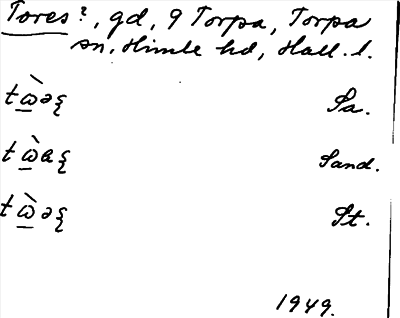 Tores?, gd, 9 Torpa, Torpa
sn, Himle hd, Hall. l.
tὼ̲əξ Sa.
tὼ̲aξ Sand.
tὼ̲əξ St.
1949.